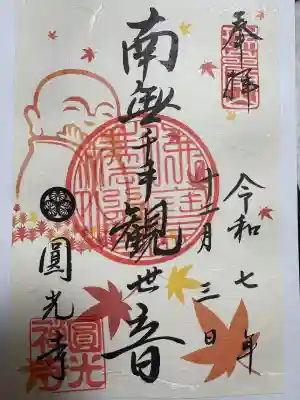 奉拝
令和七年
十一月三日
南無千手観世音
圓光寺
圓光